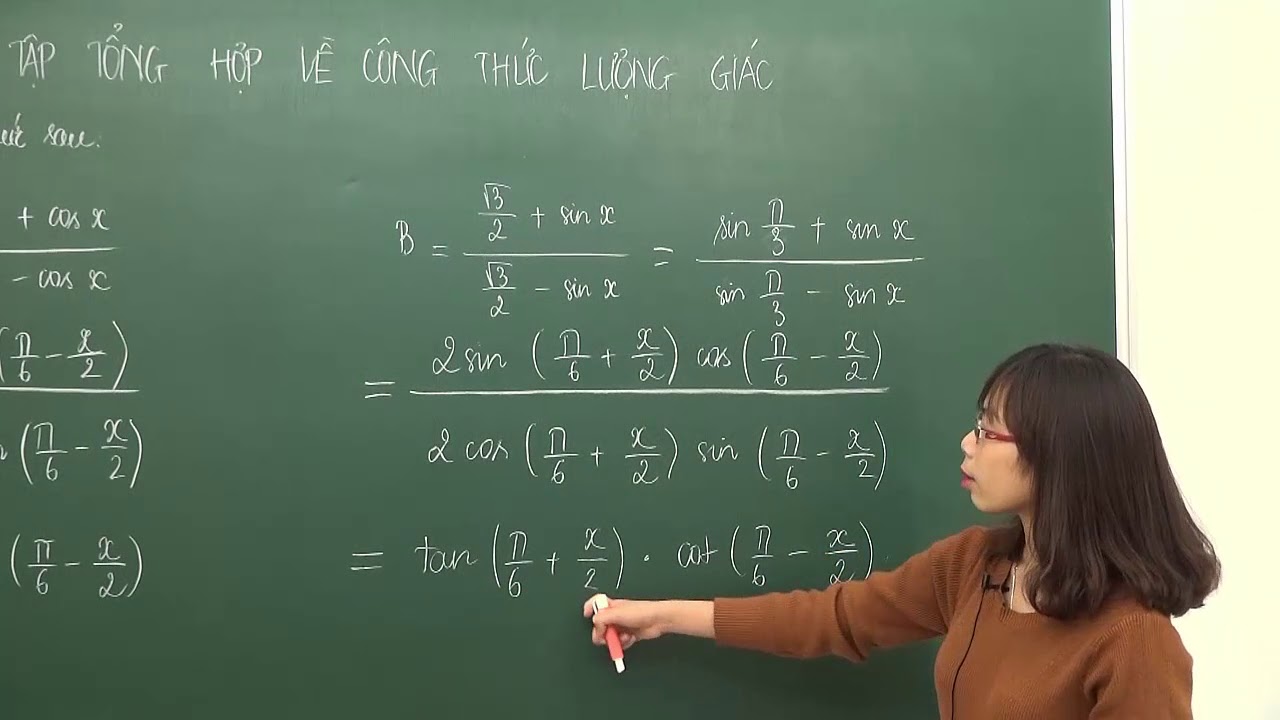 TẬP TỔNG HỢP VỀ CÔNG THỨC LƯỢNG GIÁC
sau:
+ cos x
- cos x
(π/6 - x/2)
(π/6 - x/2)
(π/6 - x/2)
B = (√3/2 + sin x)/(√3/2 - sin x) = (sin π/3 + sin x)/(sin π/3 - sin x)
= (2 sin (π/6 + x/2) cos (π/6 - x/2))/(2 cos (π/6 + x/2) sin (π/6 - x/2))
= tan (π/6 + x/2) · cot (π/6 - x/2)